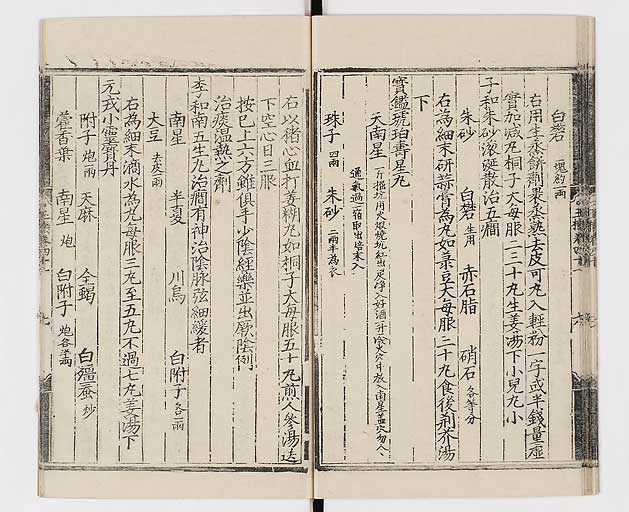 白礬 塊約兩
右用生蒸餅劑裹蒸熟去皮可丸入輕粉一字或半錢量虛
實加減丸桐子大每服二三十丸生姜湯下小兒丸小
子和朱砂滚涎散治五癇
朱砂 白礬生用 赤石脂 硝石各等分
右為細末研蒜膏為丸如菉豆大每服二十丸食後荆芥湯
下
寳鑑琥珀壽星丸
天南星一斤掘坑用火煅燒坑紅出炭淨入好酒一升
通氣過一宿取出焙末入
琥珀四兩 朱砂二兩半為衣
右以猪心血打姜糊丸如桐子大每服五十丸煎人參湯送
下空心日三服
按已上六方雖俱手少陰經藥並出厥陰例
治痰温熱之劑
李和南五生丸治癇有神治陰脉弦細緩者
南星 半夏 川烏 白附子各一兩
大豆去皮一兩
右為細末滴水為丸每服三丸至五丸不過七丸姜湯下
元戎小靈寳丹
附子炮一兩 天麻 全蝎 白殭蚕炒
藿香葉 南星炮 白附子炮各半兩